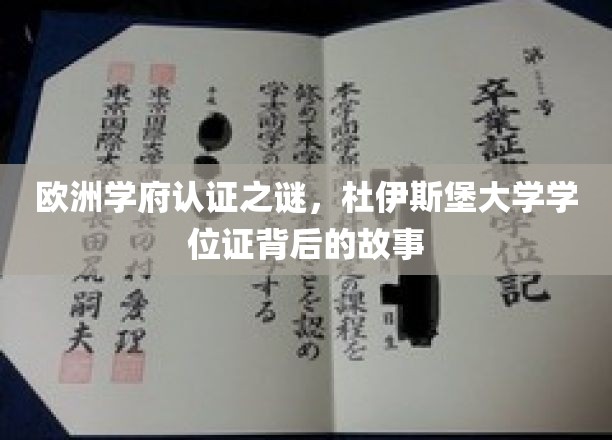 欧洲学府认证之谜，杜伊斯堡大学学
位证背后的故事
第 号
卒業証 学位記
日生
本学商学部 定の課程を
修めて本学 ことを認め
学士(商学)の する
平成
東京国際大学 田村愛理
東京国際大 長田尻嗣夫